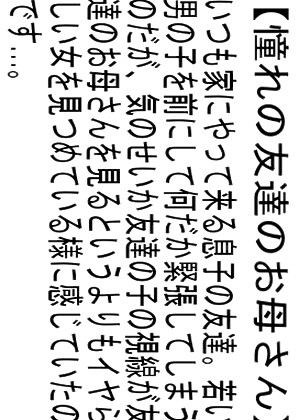 【憧れの友達のお母さん】
いつも家にやって来る息子の友達。若い
男の子を前にして何だか緊張してしまう
のだが、気のせいか友達の子の視線が友
達のお母さんを見るというよりもイヤら
しい女を見つめている様に感じていたの
です…。